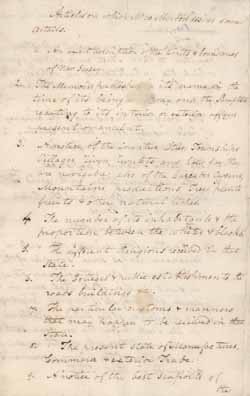 Articles on which M. de Marbois desires some
details.
1. An exact description of the limits & boundaries
of New Jersey
2. The Memoirs published in its name, in the
time of its being a Colony and the Pamphlets
relating to its interior or exterior affairs
present or ancient.
3. A notice of the Counties Cities Townships
Villages Rivers Rivulets and how far they
are navigable also of the Cascades Caverns
Mountains productions Trees plants
fruits & other natural riches
4. The number of its inhabitants & the
proportion between the whites & blacks
5. The different Religions received in that
State.
6. The Colleges & public establishments the
roads buildings &c.
7. The particular customs & manners
that may happen to be received in that
State.
8. The present state of Manufactures
Commerce & exterior Trade.
9. A notice of the best seaports of
the